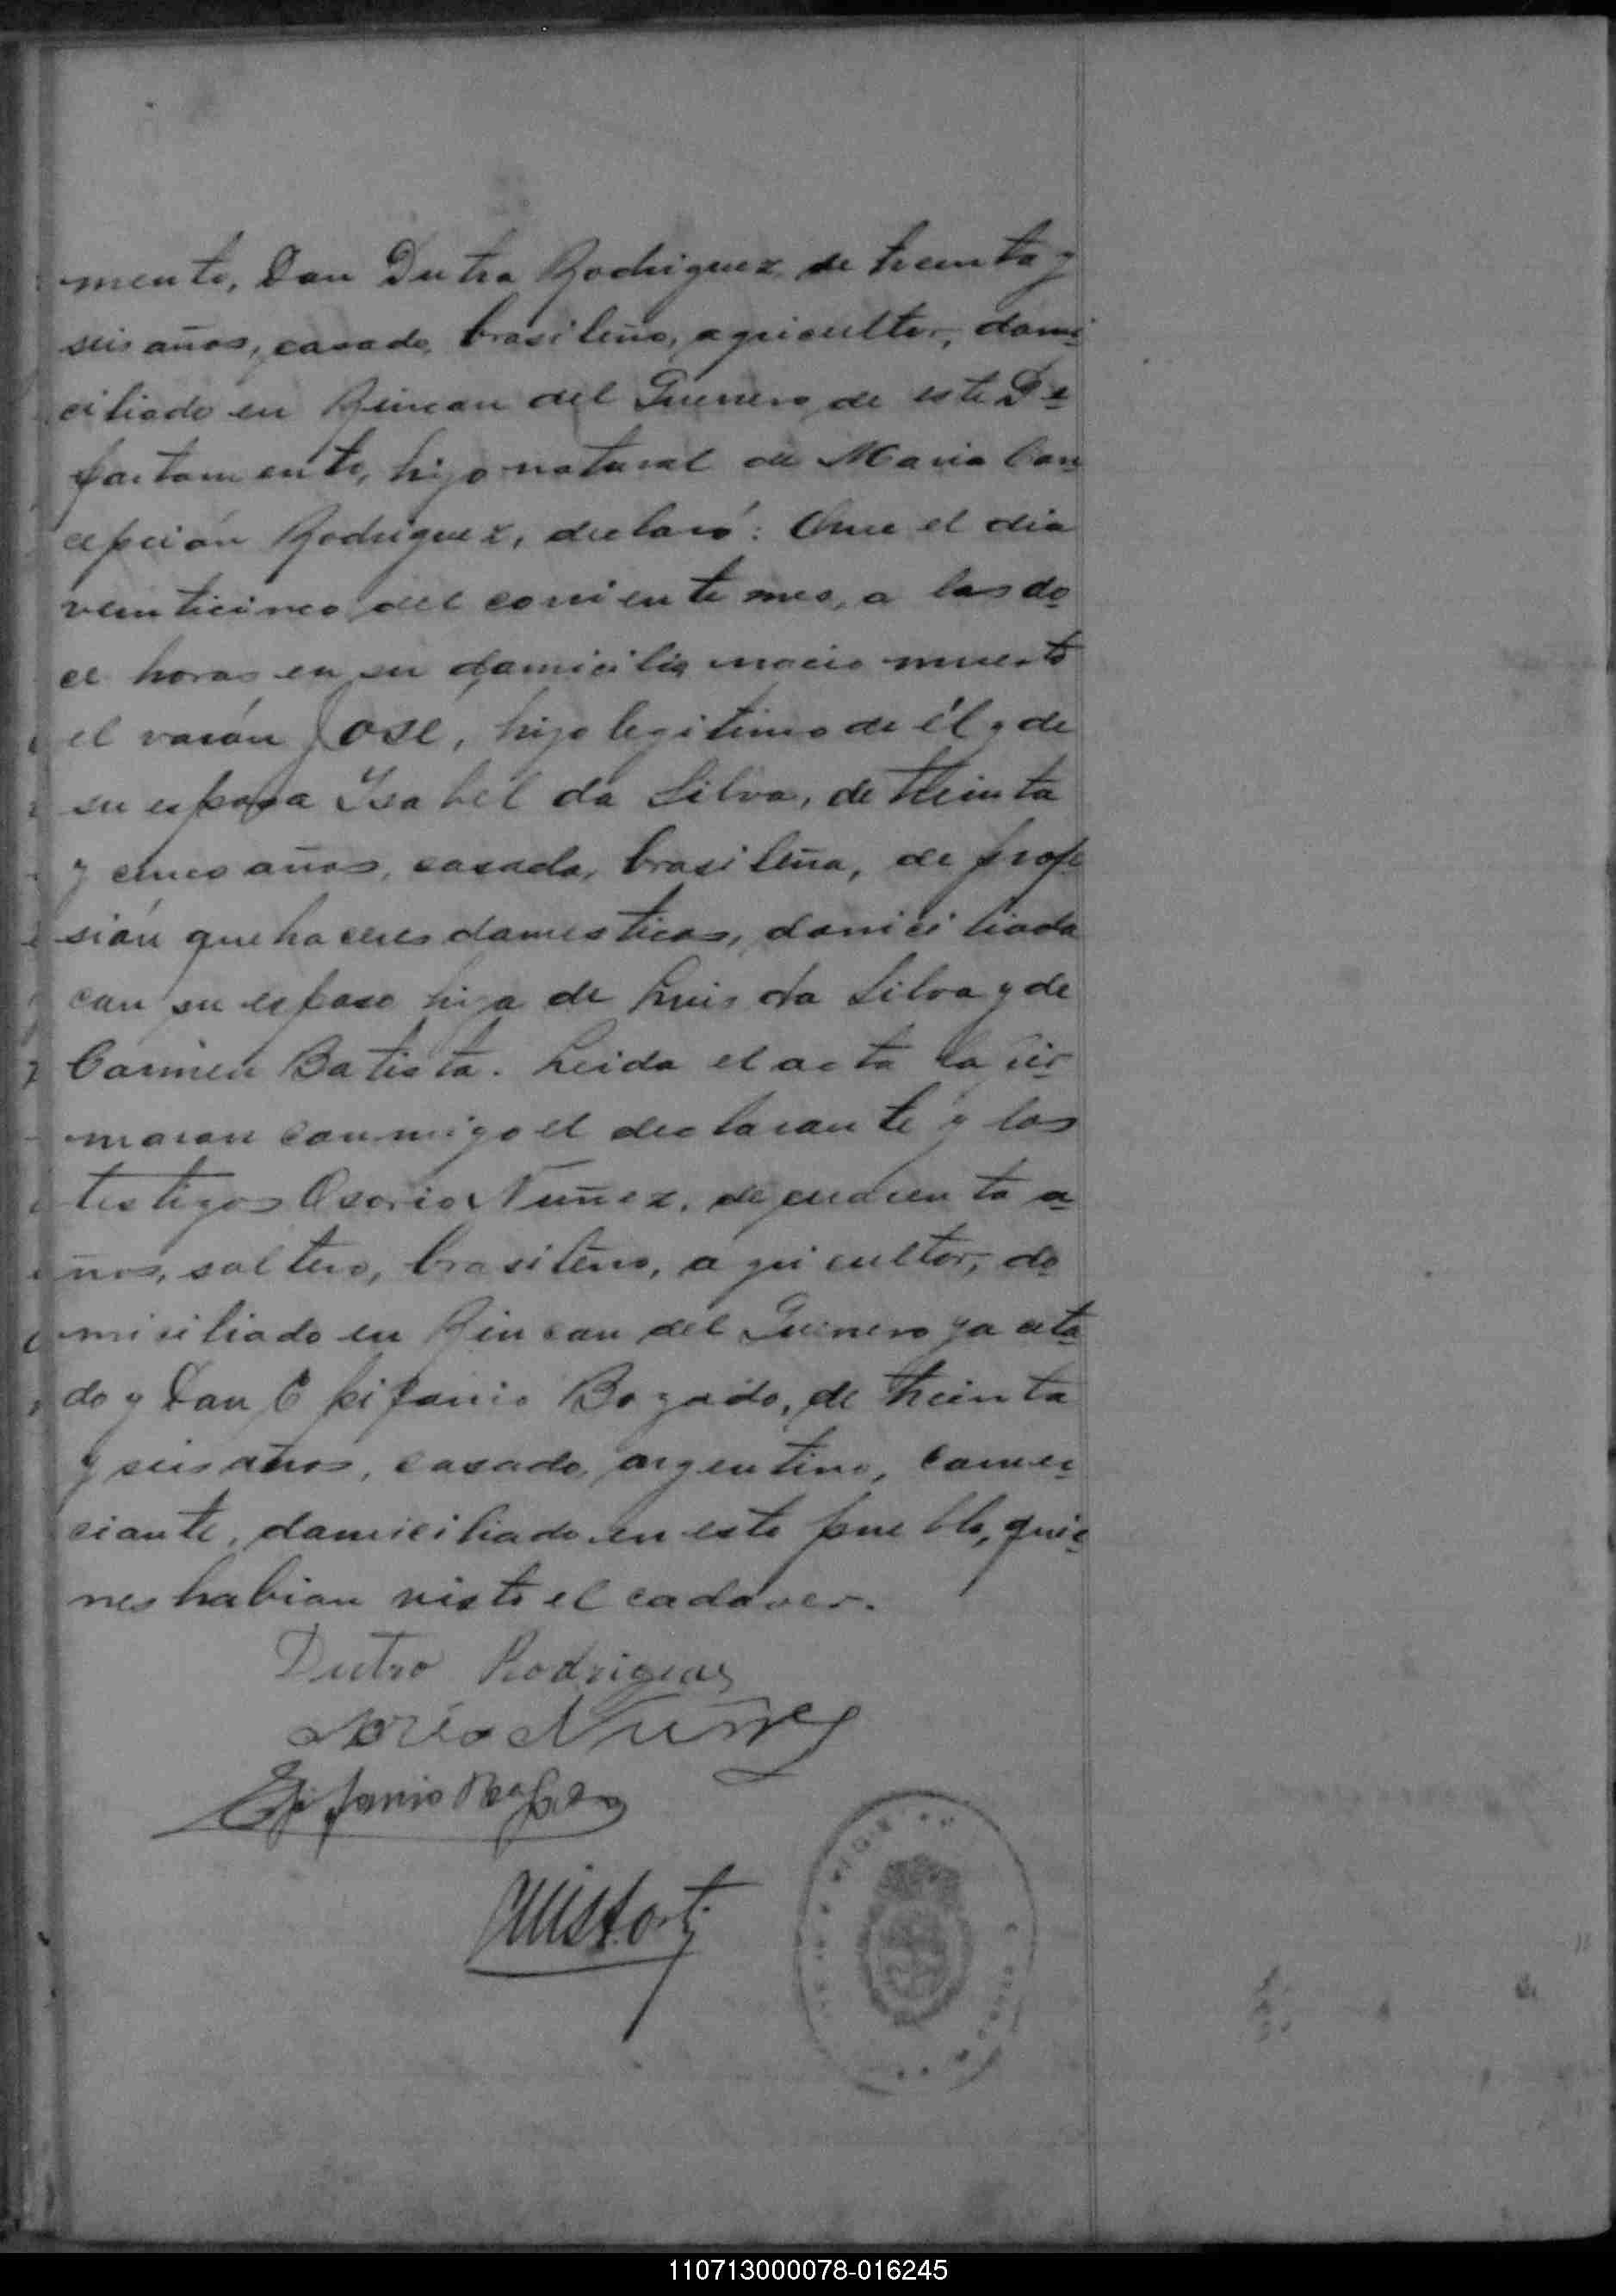 mento, Don Dutra Rodriguez, de treinta y
seis años, casado, brasileño, agricultor, domi
ciliado en Rincon del Guerrero de este De
partamento, hijo natural de Maria Con
cepción Rodriguez, declaró: Que el dia
veinticinco del corriente mes, a las do
ce horas en su domicilio nacio muerto
el varón José, hijo legitimo de él y de
su esposa Ysabel da Silva, de treinta
y cinco años, casada, brasileña, de profe
sión quehaceres domesticos, domiciliada
con su esposo hija de Luis da Silva y de
Carmen Batista. Leida el acta la fir
maron conmigo el declarante y los
testigos Osorio Nuñez, de cuarenta a
ños, soltero, brasileño, agricultor, do
miciliado en Rincon del Guerrero ya cita
do y Don Epifanio Bogado, de treinta
y seis años, casado, argentino, comer
ciante, domiciliado en este pueblo, quie
nes habian visto el cadaver.
Dutro Rodrigues
Osorio Nuñez
Epifanio Bogado
110713000078-016245